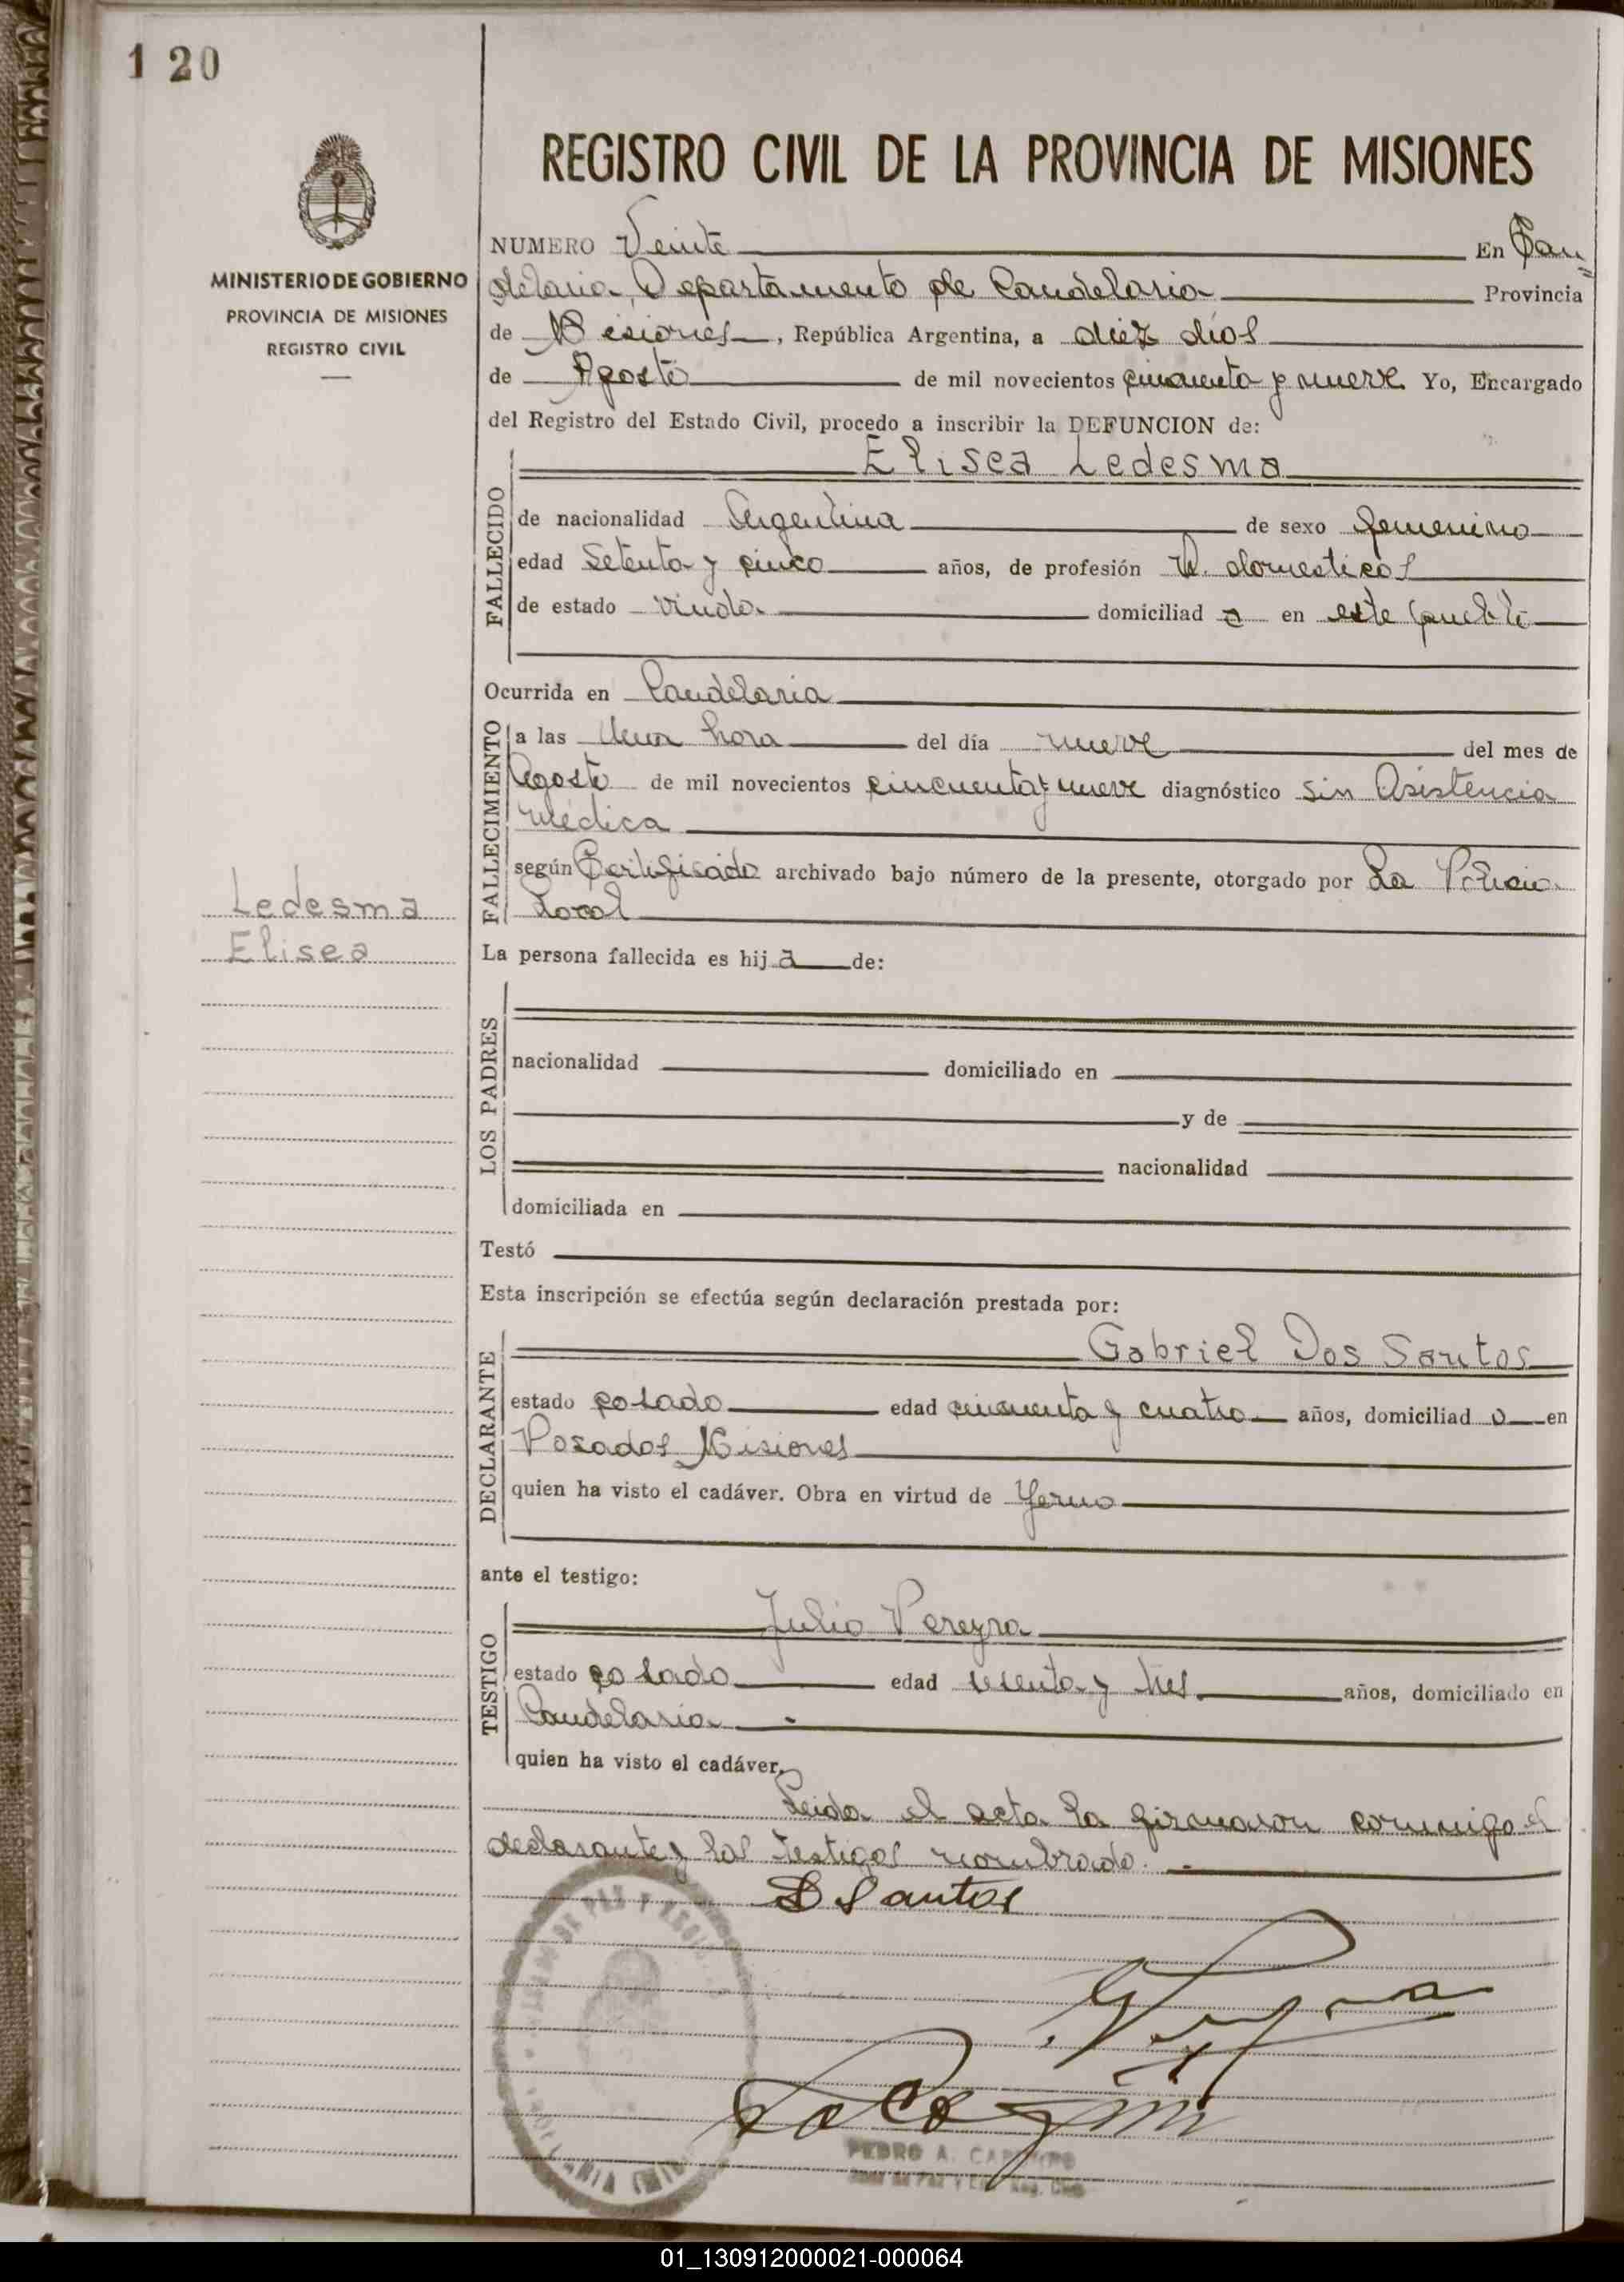 1 20
REGISTRO CIVIL DE LA PROVINCIA DE MISIONES
MINISTERIO DE GOBIERNO
PROVINCIA DE MISIONES
REGISTRO CIVIL
NUMERO Veinte En Can
delaria, Departamento de Candelaria Provincia
de Misiones, República Argentina, a diez días
de Agosto de mil novecientos cincuenta y nueve Yo, Encargado
del Registro del Estado Civil, procedo a inscribir la DEFUNCION de:
Elisea Ledesma
FALLECIDO
de nacionalidad Argentina de sexo femenino
edad Setenta y cinco años, de profesión Q. domesticos
de estado viuda domiciliad a en este pueblo
Ocurrida en Candelaria
FALLECIMIENTO
a las Una hora del día nueve del mes de
Agosto de mil novecientos cincuenta y nueve diagnóstico Sin Asistencia
Médica
según Certificado archivado bajo número de la presente, otorgado por La Policia
Local
Ledesma
Elisea
La persona fallecida es hij a de:
LOS PADRES
nacionalidad domiciliado en
y de
nacionalidad
domiciliada en
Testó
Esta inscripción se efectúa según declaración prestada por:
Gabriel Dos Santos
DECLARANTE
estado casado edad cincuenta y cuatro años, domiciliad o en
Posadas Misiones
quien ha visto el cadáver. Obra en virtud de Yerno
ante el testigo:
Julio Pereyra
TESTIGO
estado casado edad sesenta y tres años, domiciliado en
Candelaria
quien ha visto el cadáver.
Leida el acta la firmaron conmigo el
declarante y los testigos nombrado.
D Santos
PEDRO A.
01_130912000021-000064